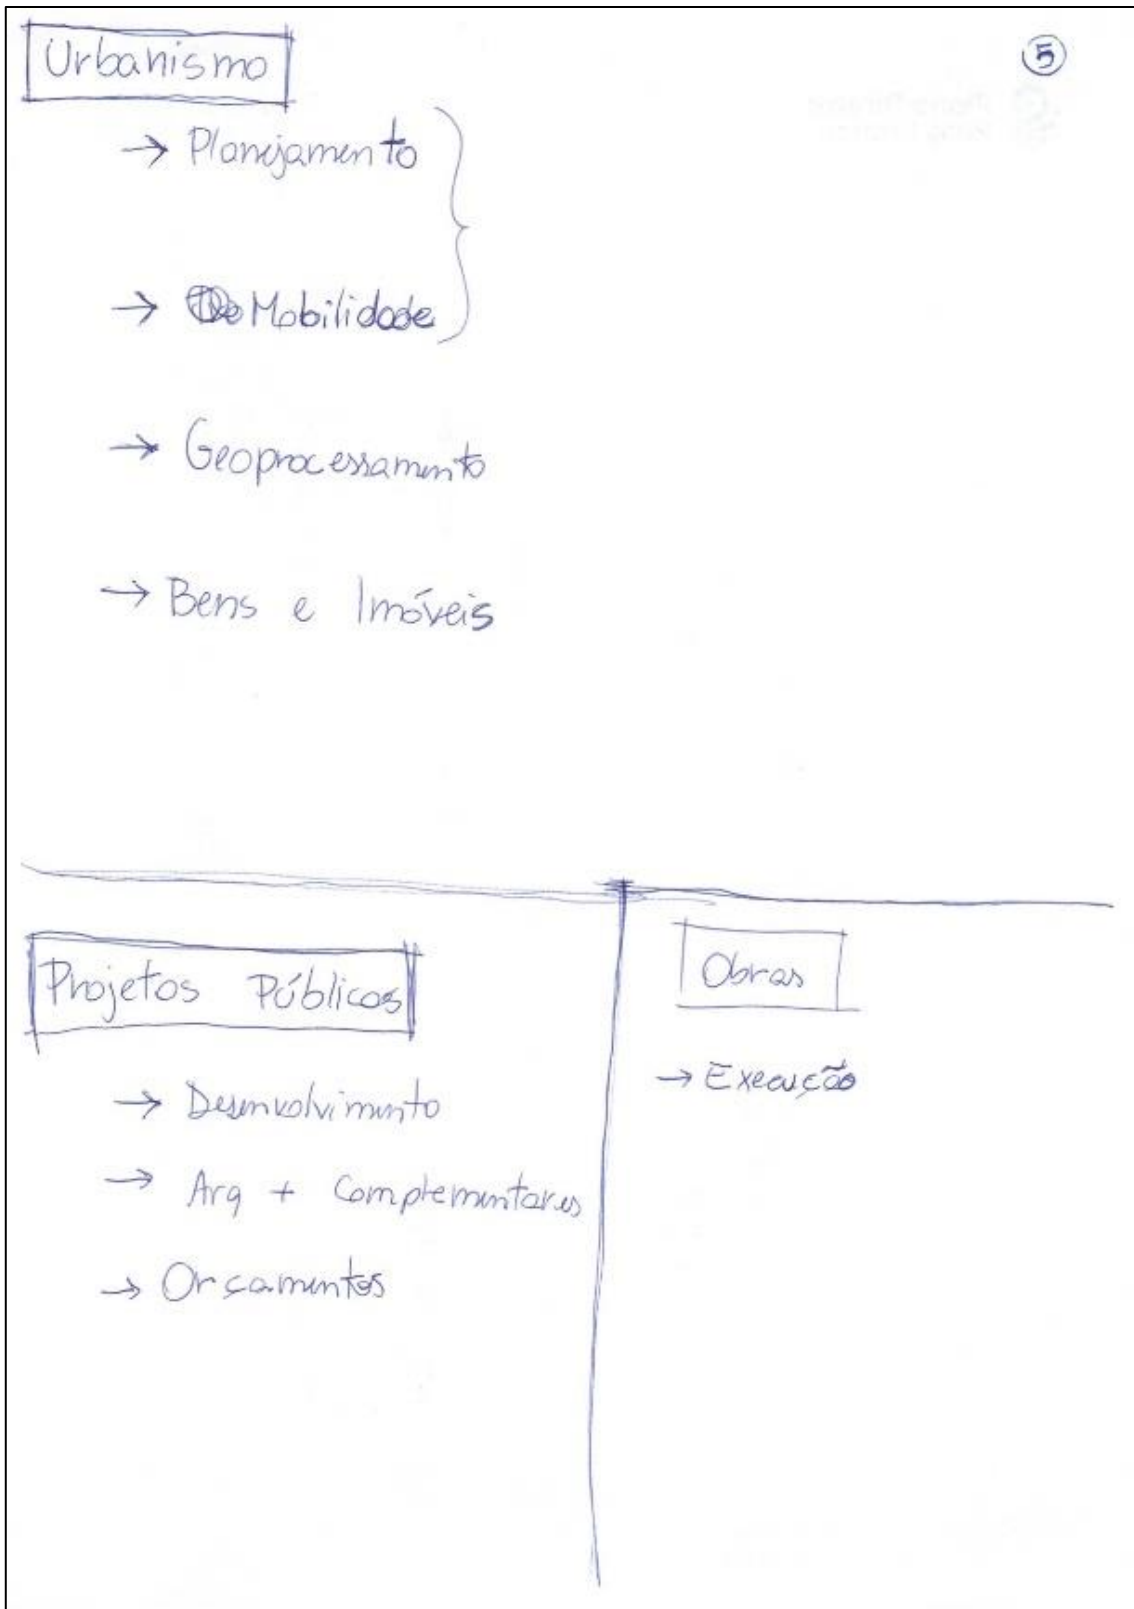 Urbanismo
5
→ Planejamento
→ Mobilidade
→ Geoprocessamento
→ Bens e Imóveis
Projetos Públicos
→ Desenvolvimento
→ Arq + Complementares
→ Orçamentos
Obras
→ Execução